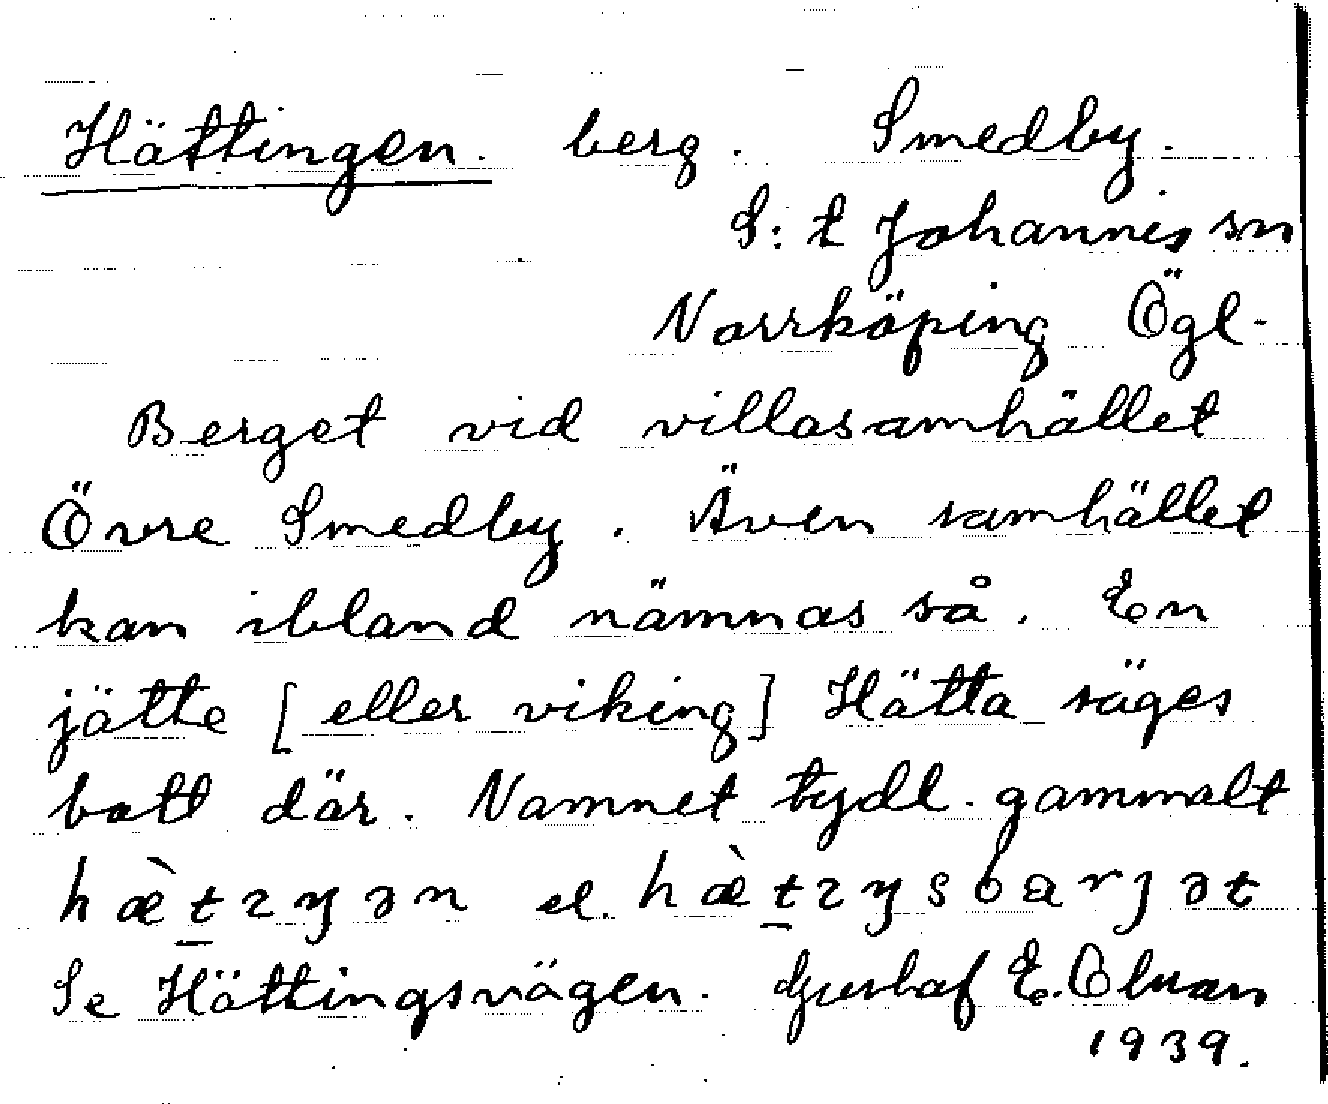 Hättingen. berg. Smedby.
S:t Johannis sn
Norrköping Ögl.
Berget vid villasamhället
Övre Smedby. Även samhället
kan ibland nämnas så. En
jätte [eller viking] Hätta säges
bott där. Namnet tydl. gammalt
hæ̀t̠ɪŋən el. hæ̀t̠ɪŋsbarjət
Se Hättingsvägen. Gustaf E. Olsson
1939.